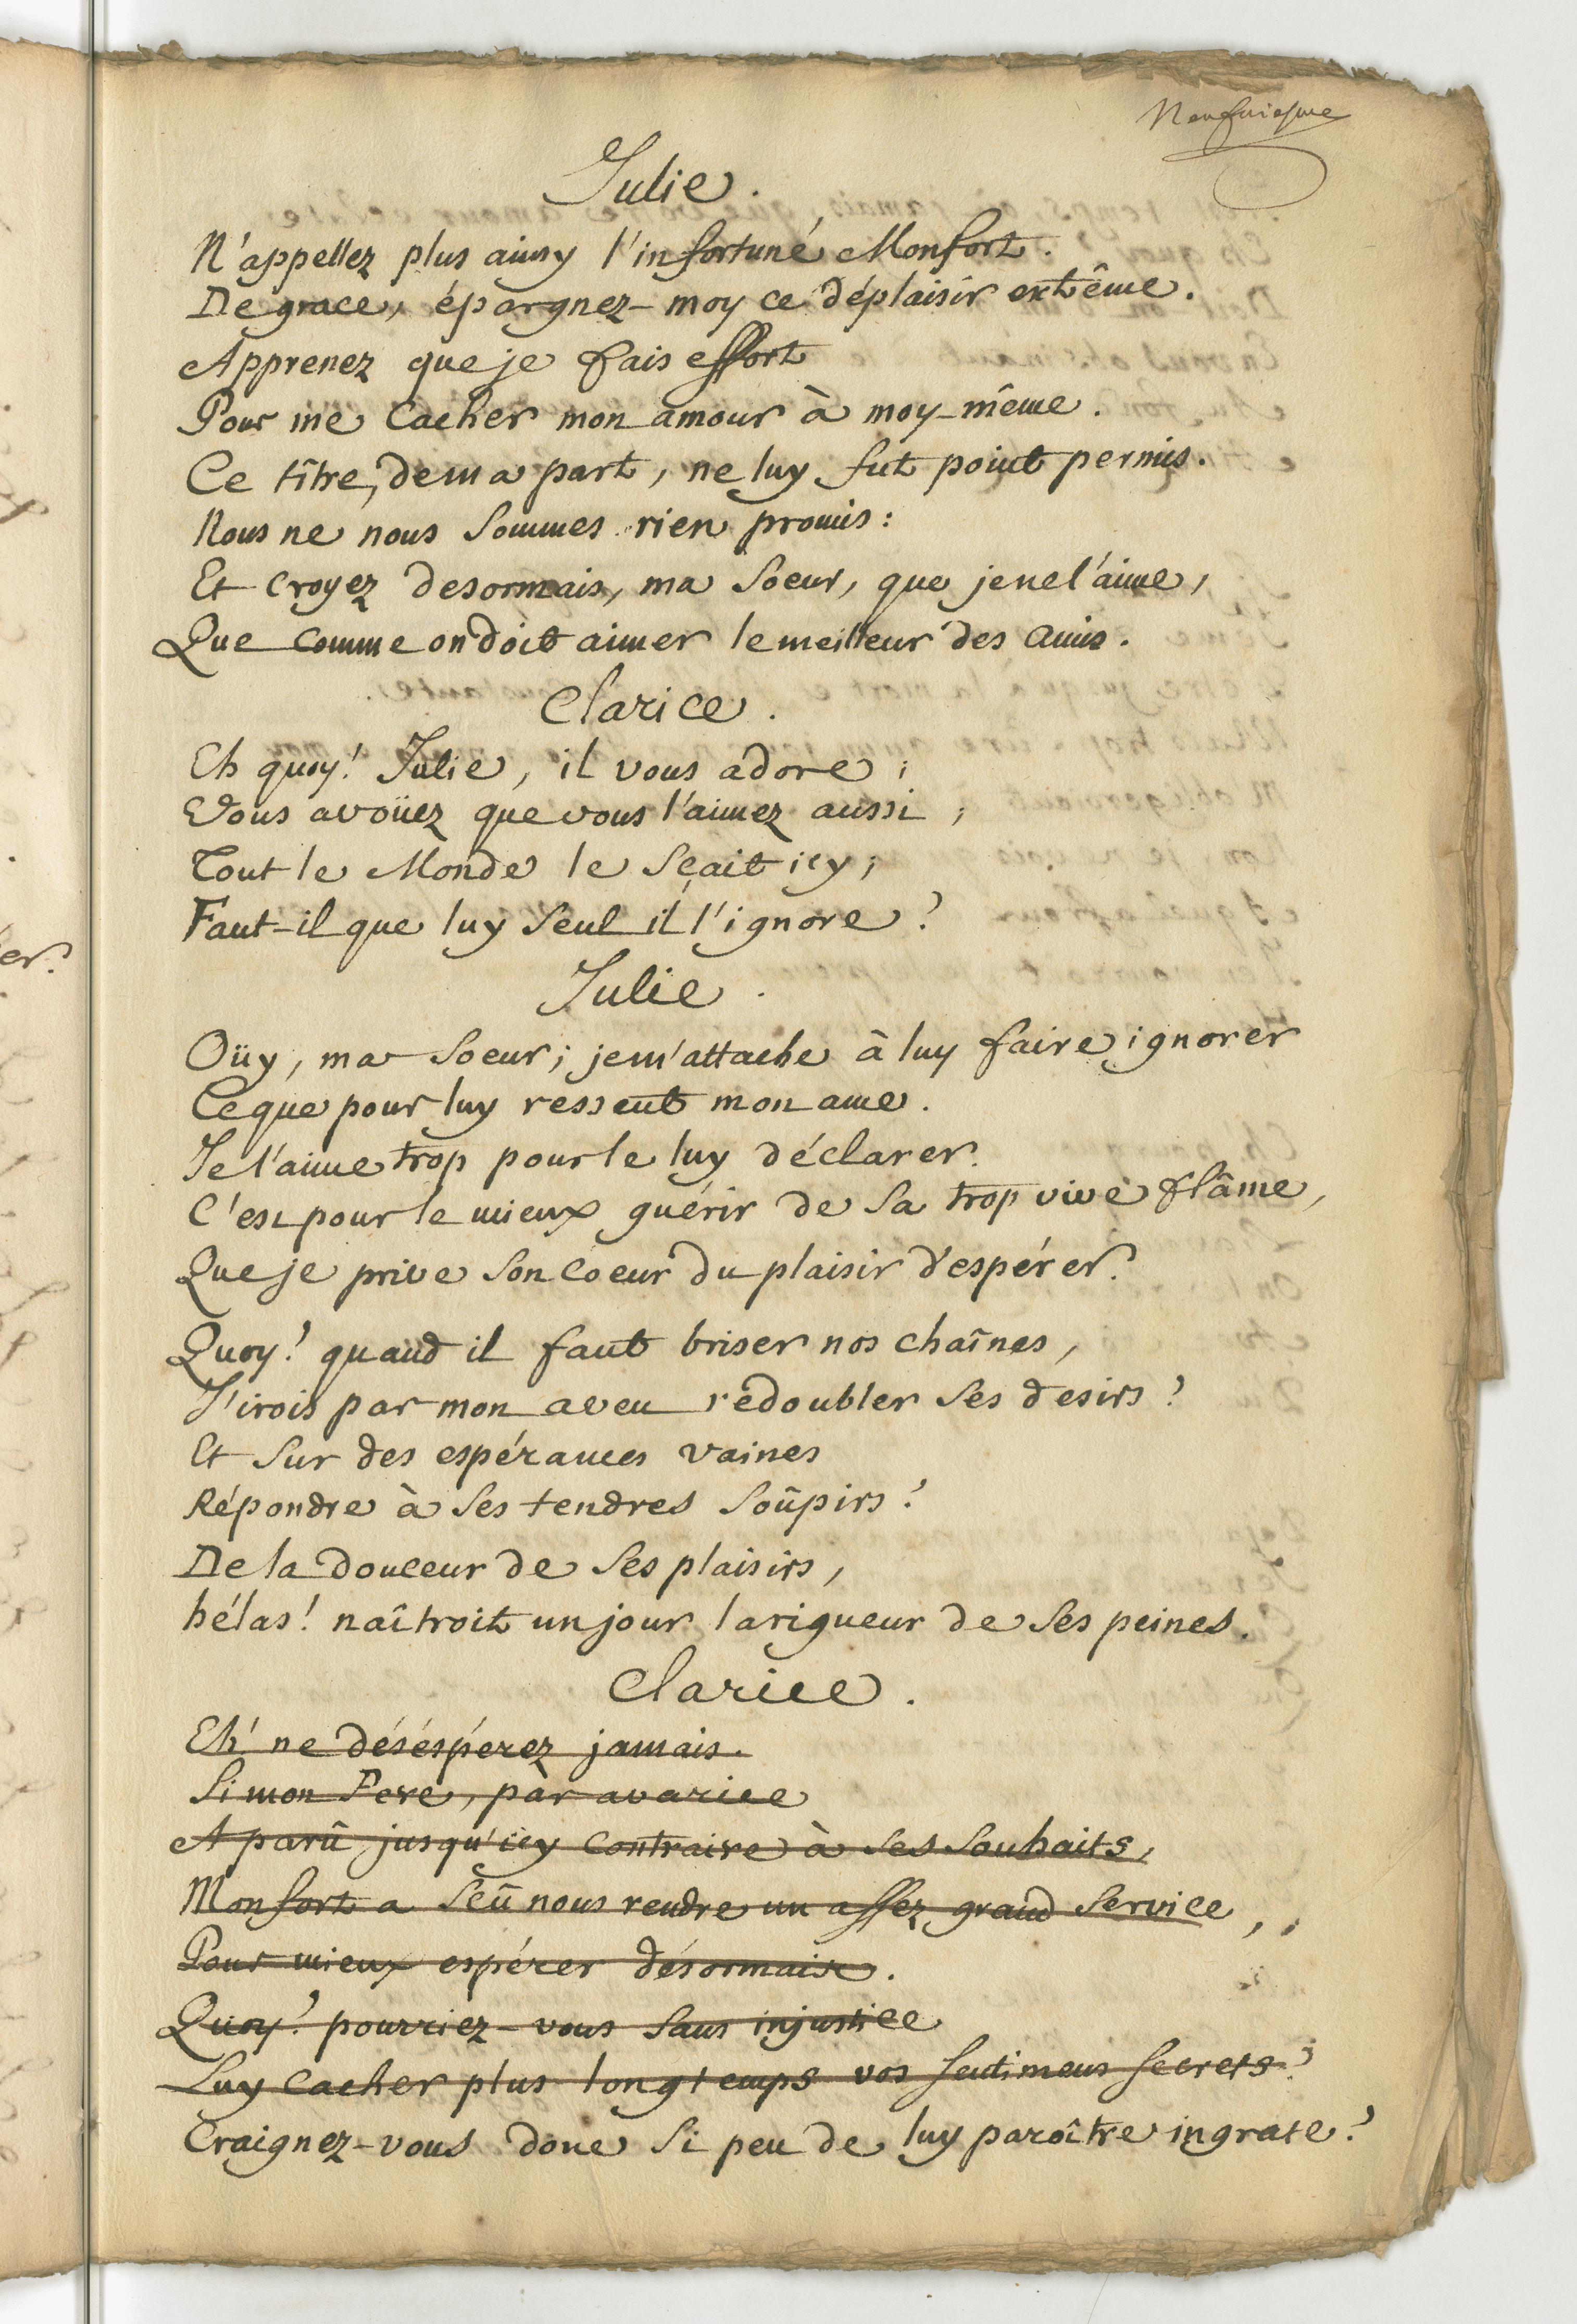 Neufuiesme
Julie.
N'appellez plus ainsy l'infortuné Monfort.
De grace, épargnez-moy ce déplaisir extrême.
Apprenez que je fais effort
Pour me cacher mon amour à moy-même.
Ce tître, de ma part, ne luy fut point permis.
Nous ne nous sommes rien promis:
Et croyez desormais, ma soeur, que je ne l'aime,
Que comme on doit aimer le meilleur des amis.
Clarice.
Eh quoy! Julie, il vous adore;
Vous avoüez que vous l'aimez aussi;
Tout le Monde le sçait icy;
Faut-il que luy seul il l'ignore?
Julie.
Oüy, ma soeur; je m'attache à luy faire ignorer
Ce que pour luy ressent mon ame.
Je l'aime trop pour le luy déclarer.
C'est pour le mieux guérir de sa trop vive flâme,
Que je prive son coeur du plaisir d'espérer.
Quoy! quand il faut briser nos chaînes,
J'irois par mon aveu redoubler ses desirs?
Et sur des espérances vaines
Répondre à ses tendres soûpirs?
De la douceur de ses plaisirs,
hélas! naîtroit un jour la rigueur de ses peines.
Clarice.
Eh! ne désésperez jamais.
Si mon Pere, par avarice
A parû jusqu'icy contraire à ses souhaits,
Monfort a sçû nous rendre un assez grand service,
Pour mieux espérer désormais.
Quoy! pourriez-vous sans injustice
Luy cacher plus longtemps vos sentimens secrets?
Craignez-vous donc si peu de luy paroître ingrate?